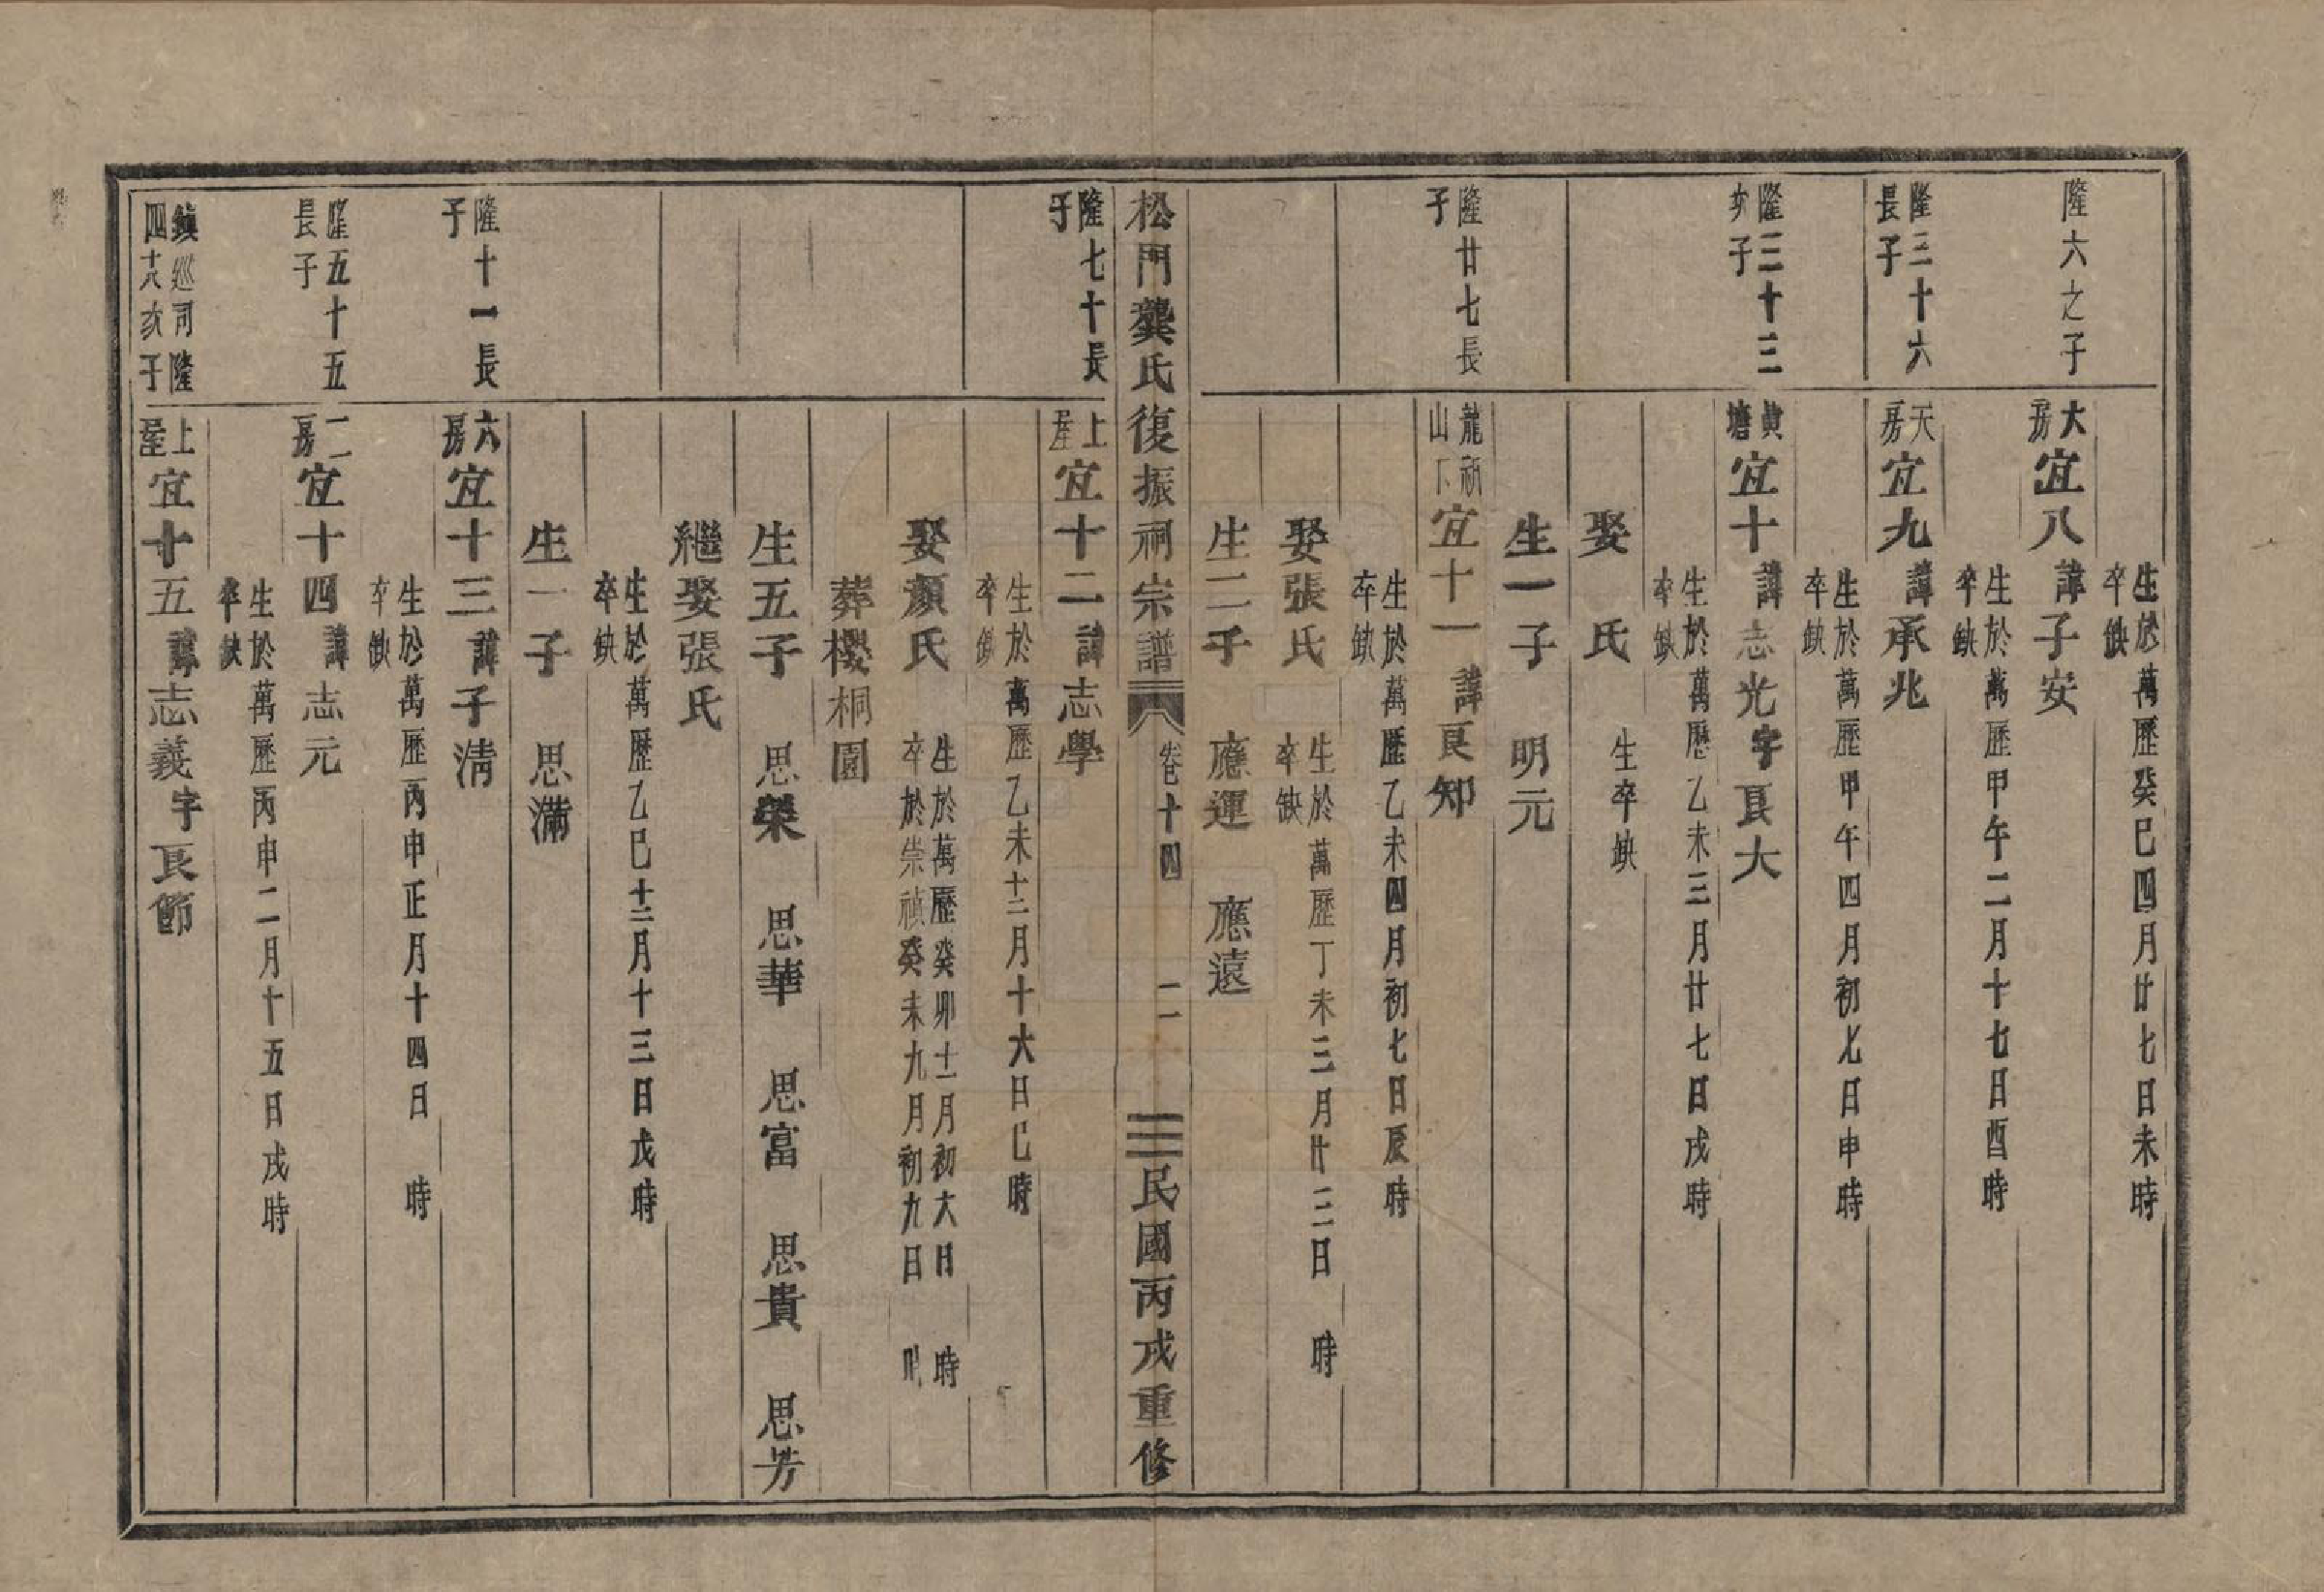 生於萬歷癸巳四月廿七日未時
卒缺
隆六之子
大房宜八諱子安
生於萬歷甲午二月十七日酉時
卒缺
隆三十六長子
天房宜九諱承兆
生於萬歷甲午四月初七日申時
卒缺
隆三十三次子
黄塘宜十諱志光字良大
生於萬歷乙未三月廿七日戌時
卒缺
娶 氏 生卒缺
生一子 明元
隆廿七長子
龍祈山下宜十一諱良知
生於萬歷乙未四月初七日辰時
卒缺
娶張氏
生於萬歷丁未三月廿三日 時
卒缺
生二子 應運 應遠
松門龔氏復振祠宗譜 卷十四 二 民國丙戌重修
隆七十長子
上屋宜十二諱志學
生於萬歷乙未十二月十六日巳時
卒缺
娶顏氏
生於萬歷癸卯十二月初六日 時
卒於崇禎癸未九月初九日 時
葬櫻桐園
生五子 思榮 思華 思富 思貴 思芳
繼娶張氏
生於萬歷乙巳十二月十三日戌時
卒缺
生一子 思滿
隆十一長子
六房宜十三諱子清
生於萬歷丙申正月十四日 時
卒缺
隆五十五長子
二房宜十四諱志元
生於萬歷丙申二月十五日戌時
卒缺
鎮巡司隆四十八次子
上屋宜十五諱志義字良節